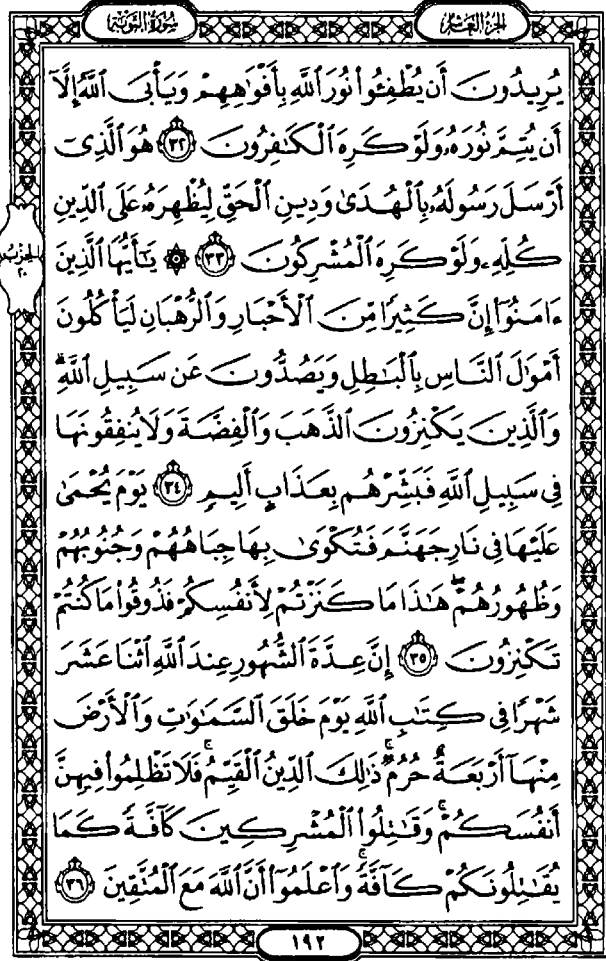 الجزء العاشر
سورة التوبة
يُرِيدُونَ أَن يُطْفِـُٔوا۟ نُورَ ٱللَّهِ بِأَفْوَٰهِهِمْ وَيَأْبَى ٱللَّهُ إِلَّآ
أَن يُتِمَّ نُورَهُۥ وَلَوْ كَرِهَ ٱلْكَـٰفِرُونَ ٣٢ هُوَ ٱلَّذِىٓ
أَرْسَلَ رَسُولَهُۥ بِٱلْهُدَىٰ وَدِينِ ٱلْحَقِّ لِيُظْهِرَهُۥ عَلَى ٱلدِّينِ
كُلِّهِۦ وَلَوْ كَرِهَ ٱلْمُشْرِكُونَ ٣٣ ۞ يَـٰٓأَيُّهَا ٱلَّذِينَ
الحزب ٢٠
ءَامَنُوٓا۟ إِنَّ كَثِيرًا مِّنَ ٱلْأَحْبَارِ وَٱلرُّهْبَانِ لَيَأْكُلُونَ
أَمْوَٰلَ ٱلنَّاسِ بِٱلْبَـٰطِلِ وَيَصُدُّونَ عَن سَبِيلِ ٱللَّهِ ۗ
وَٱلَّذِينَ يَكْنِزُونَ ٱلذَّهَبَ وَٱلْفِضَّةَ وَلَا يُنفِقُونَهَا
فِى سَبِيلِ ٱللَّهِ فَبَشِّرْهُم بِعَذَابٍ أَلِيمٍ ٣٤ يَوْمَ يُحْمَىٰ
عَلَيْهَا فِى نَارِ جَهَنَّمَ فَتُكْوَىٰ بِهَا جِبَاهُهُمْ وَجُنُوبُهُمْ
وَظُهُورُهُمْ ۖ هَـٰذَا مَا كَنَزْتُمْ لِأَنفُسِكُمْ فَذُوقُوا۟ مَا كُنتُمْ
تَكْنِزُونَ ٣٥ إِنَّ عِدَّةَ ٱلشُّهُورِ عِندَ ٱللَّهِ ٱثْنَا عَشَرَ
شَهْرًا فِى كِتَـٰبِ ٱللَّهِ يَوْمَ خَلَقَ ٱلسَّمَـٰوَٰتِ وَٱلْأَرْضَ
مِنْهَآ أَرْبَعَةٌ حُرُمٌ ۚ ذَٰلِكَ ٱلدِّينُ ٱلْقَيِّمُ ۚ فَلَا تَظْلِمُوا۟ فِيهِنَّ
أَنفُسَكُمْ ۚ وَقَـٰتِلُوا۟ ٱلْمُشْرِكِينَ كَآفَّةً كَمَا
يُقَـٰتِلُونَكُمْ كَآفَّةً ۚ وَٱعْلَمُوٓا۟ أَنَّ ٱللَّهَ مَعَ ٱلْمُتَّقِينَ ٣٦
١٩٢